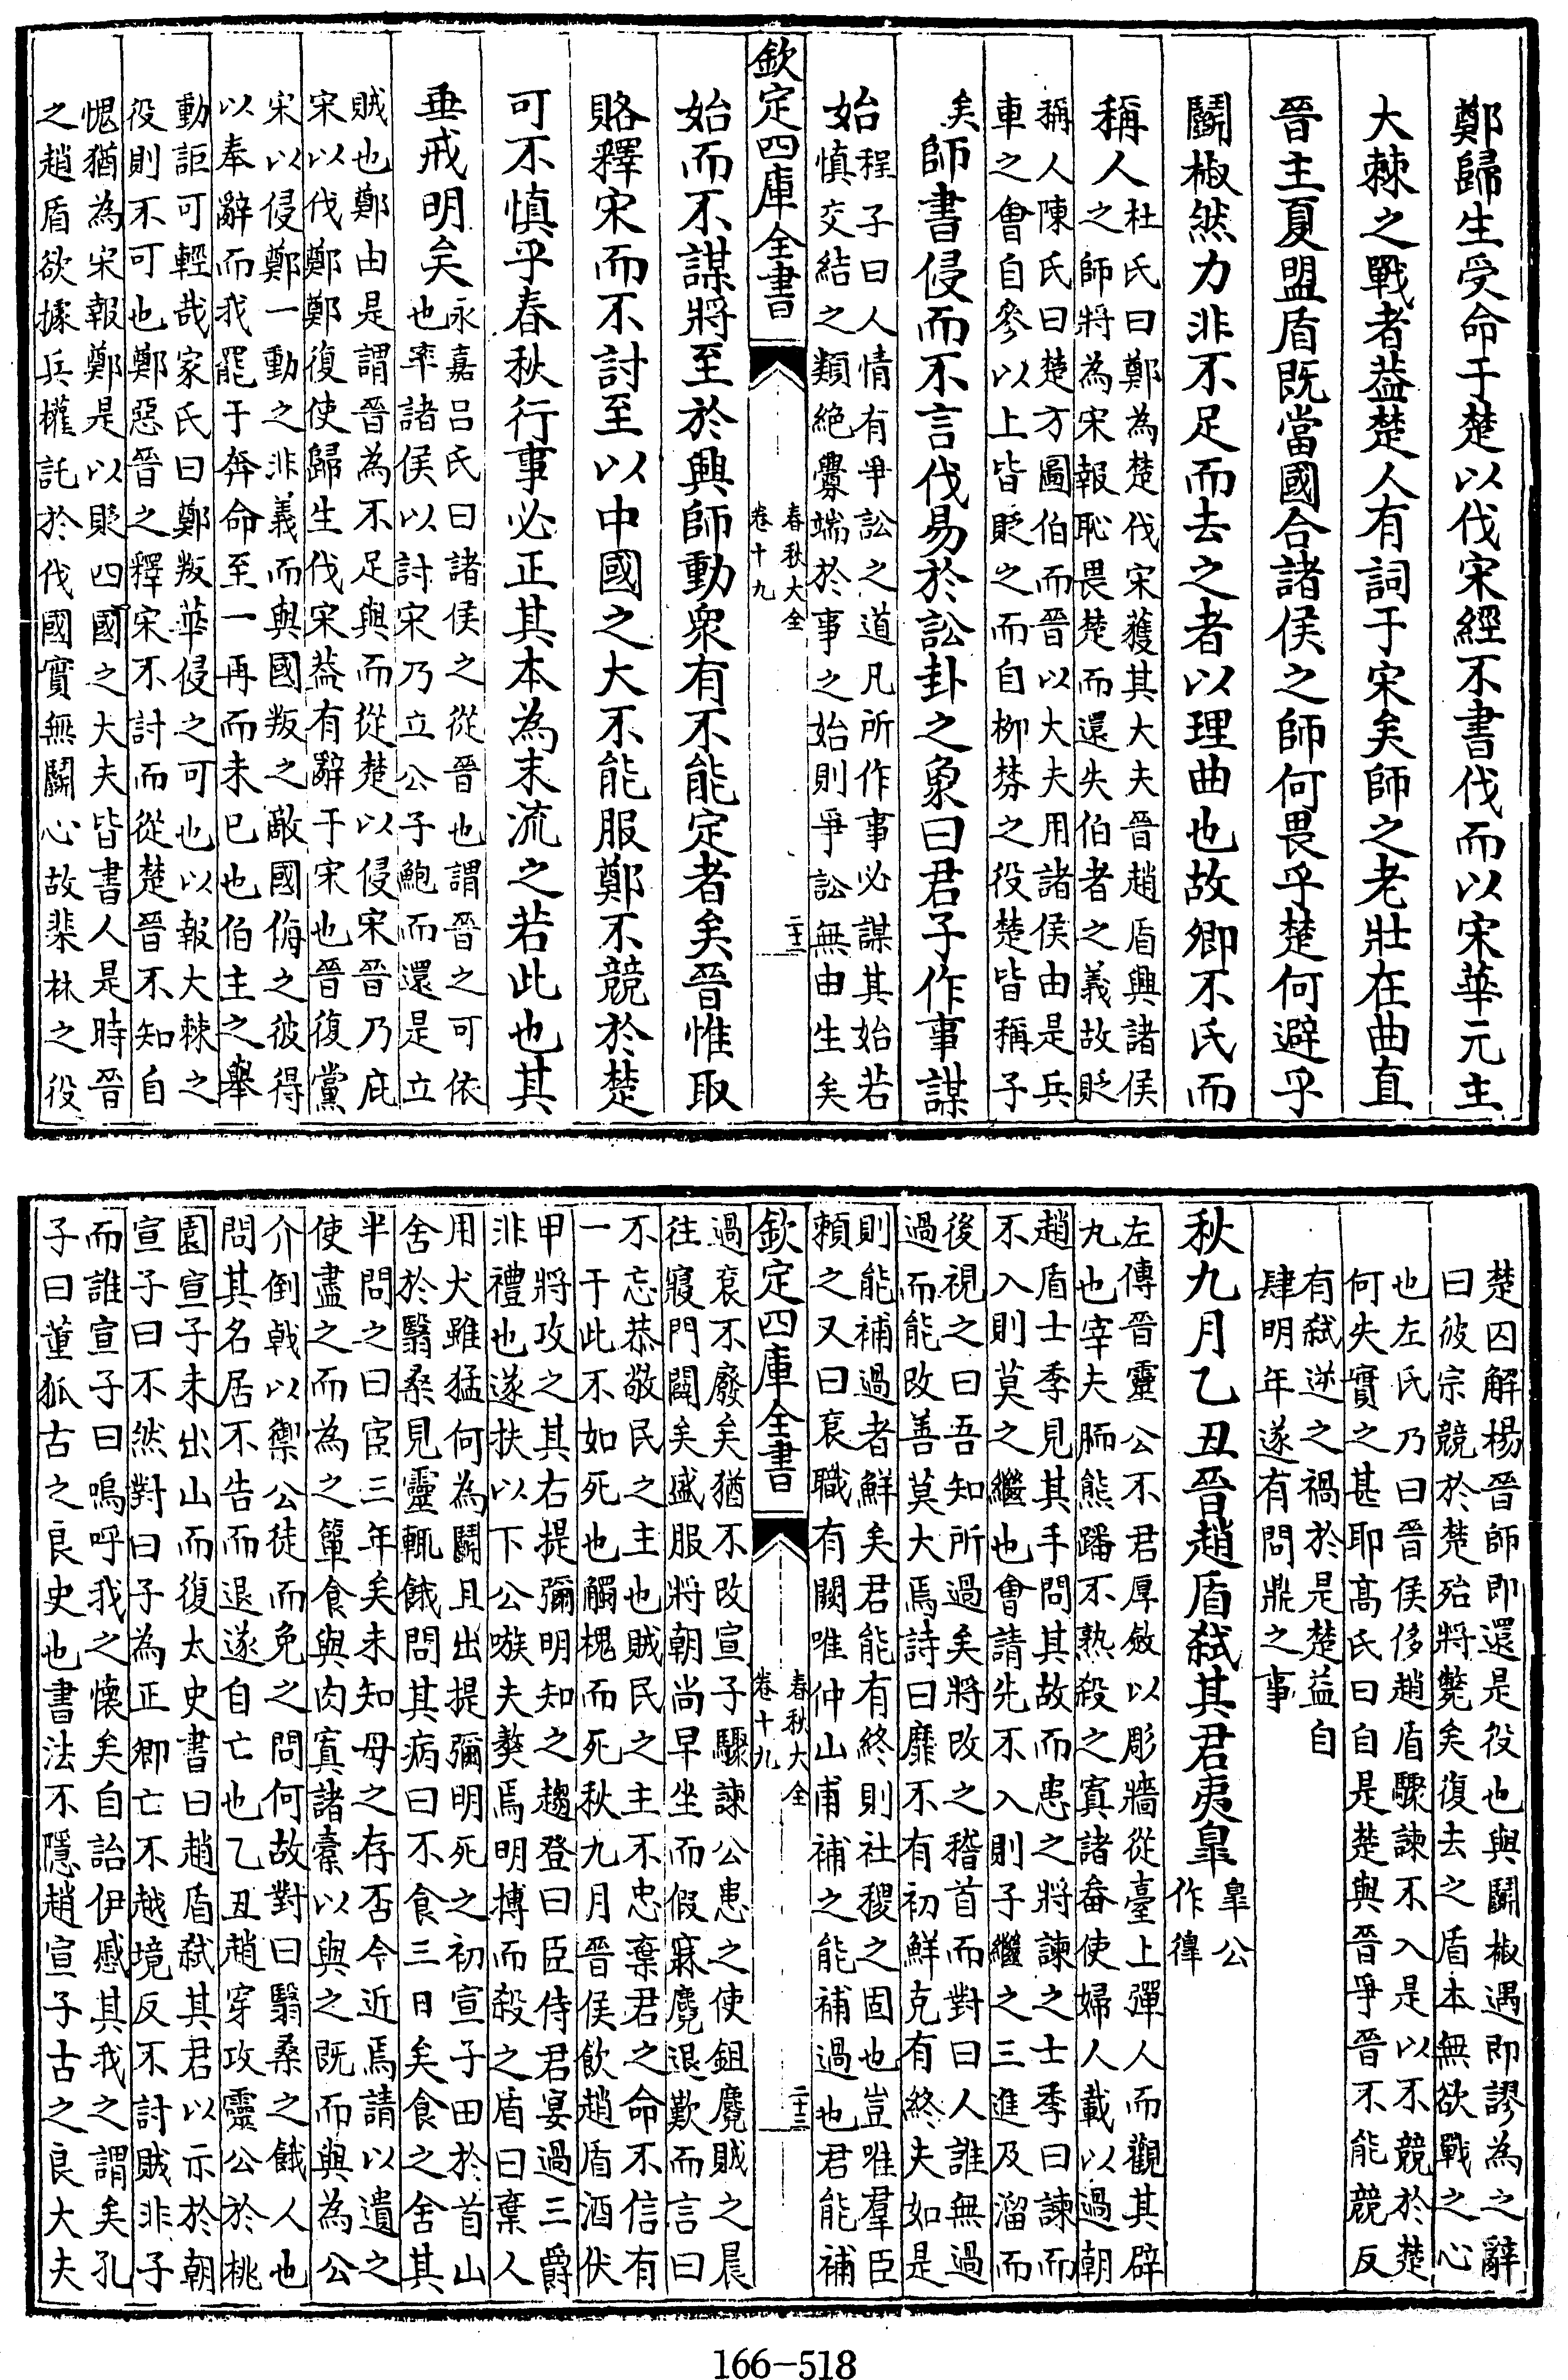 鄭歸生受命于楚以伐宋經不書伐而以宋華元主
大棘之戰者葢楚人有詞于宋矣師之老壯在曲直
晉主夏盟盾既當國合諸侯之師何畏乎楚何避乎
鬬椒然力非不足而去之者以理曲也故卿不氏而
稱人
杜氏曰鄭為楚伐宋獲其大夫晉趙盾興諸侯
之師將為宋報恥畏楚而還失伯者之義故貶
稱人陳氏曰楚方圖伯而晉以大夫用諸侯由是兵
車之會自參以上皆貶之而自柳棼之役楚皆稱子
矣
師書侵而不言伐易於訟卦之象曰君子作事謀
始
程子曰人情有爭訟之道凡所作事必謀其始若
慎交結之類絶釁端於事之始則爭訟無由生矣
欽定四庫全書
春秋大全
卷十九
二十二
始而不謀將至於興師動衆有不能定者矣晉惟取
賂釋宋而不討至以中國之大不能服鄭不競於楚
可不慎乎春秋行事必正其本為末流之若此也其
垂戒明矣
永嘉呂氏曰諸侯之從晉也謂晉之可依
也率諸侯以討宋乃立公子鮑而還是立
賊也鄭由是謂晉為不足與而從楚以侵宋晉乃庇
宋以伐鄭鄭復使歸生伐宋葢有辭于宋也晉復黨
宋以侵鄭一動之非義而與國叛之敵國侮之彼得
以奉辭而我罷于奔命至一再而未已也伯主之舉
動詎可輕哉家氏曰鄭叛華侵之可也以報大棘之
役則不可也鄭惡晉之釋宋不討而從楚晉不知自
愧猶為宋報鄭是以貶四國之大夫皆書人是時晉
之趙盾欲據兵權託於伐國實無鬬心故棐林之役
楚囚解楊晉師即還是役也與鬬椒遇即謬為之辭
曰彼宗競於楚殆將斃矣復去之盾本無欲戰之心
也左氏乃曰晉侯侈趙盾驟諫不入是以不競於楚
何失實之甚耶髙氏曰自是楚與晉爭晉不能競反
有弑逆之禍於是楚益自
肆明年遂有問鼎之事
秋九月乙丑晉趙盾弑其君夷臯
臯公
作獋
左傳晉靈公不君厚斂以彫牆從臺上彈人而觀其辟
九也宰夫胹熊蹯不熟殺之寘諸畚使婦人載以過朝
趙盾士季見其手問其故而患之將諫之士季曰諫而
不入則莫之繼也會請先不入則子繼之三進及溜而
後視之曰吾知所過矣將改之稽首而對曰人誰無過
過而能改善莫大焉詩曰靡不有初鮮克有終夫如是
則能補過者鮮矣君能有終則社稷之固也豈唯羣臣
頼之又曰衮職有闕唯仲山甫補之能補過也君能補
欽定四庫全書
春秋大全
卷十九
二十三
過衮不廢矣猶不改宣子驟諫公患之使鉏麑賊之晨
往寢門闢矣盛服將朝尚早坐而假寐麑退歎而言曰
不忘恭敬民之主也賊民之主不忠棄君之命不信有
一于此不如死也觸槐而死秋九月晉侯飲趙盾酒伏
甲將攻之其右提彌明知之趨登曰臣侍君宴過三爵
非禮也遂扶以下公嗾夫獒焉明搏而殺之盾曰棄人
用犬雖猛何為鬬且出提彌明死之初宣子田於首山
舍於翳桑見靈輒餓問其病曰不食三日矣食之舍其
半問之曰宦三年矣未知母之存否今近焉請以遺之
使盡之而為之簞食與肉寘諸橐以與之既而與為公
介倒戟以禦公徒而免之問何故對曰翳桑之餓人也
問其名居不告而退遂自亡也乙丑趙穿攻靈公於桃
園宣子未出山而復太史書曰趙盾弑其君以示於朝
宣子曰不然對曰子為正卿亡不越境反不討賊非子
而誰宣子曰嗚呼我之懐矣自詒伊慼其我之謂矣孔
子曰董狐古之良史也書法不隱趙宣子古之良大夫
166-518